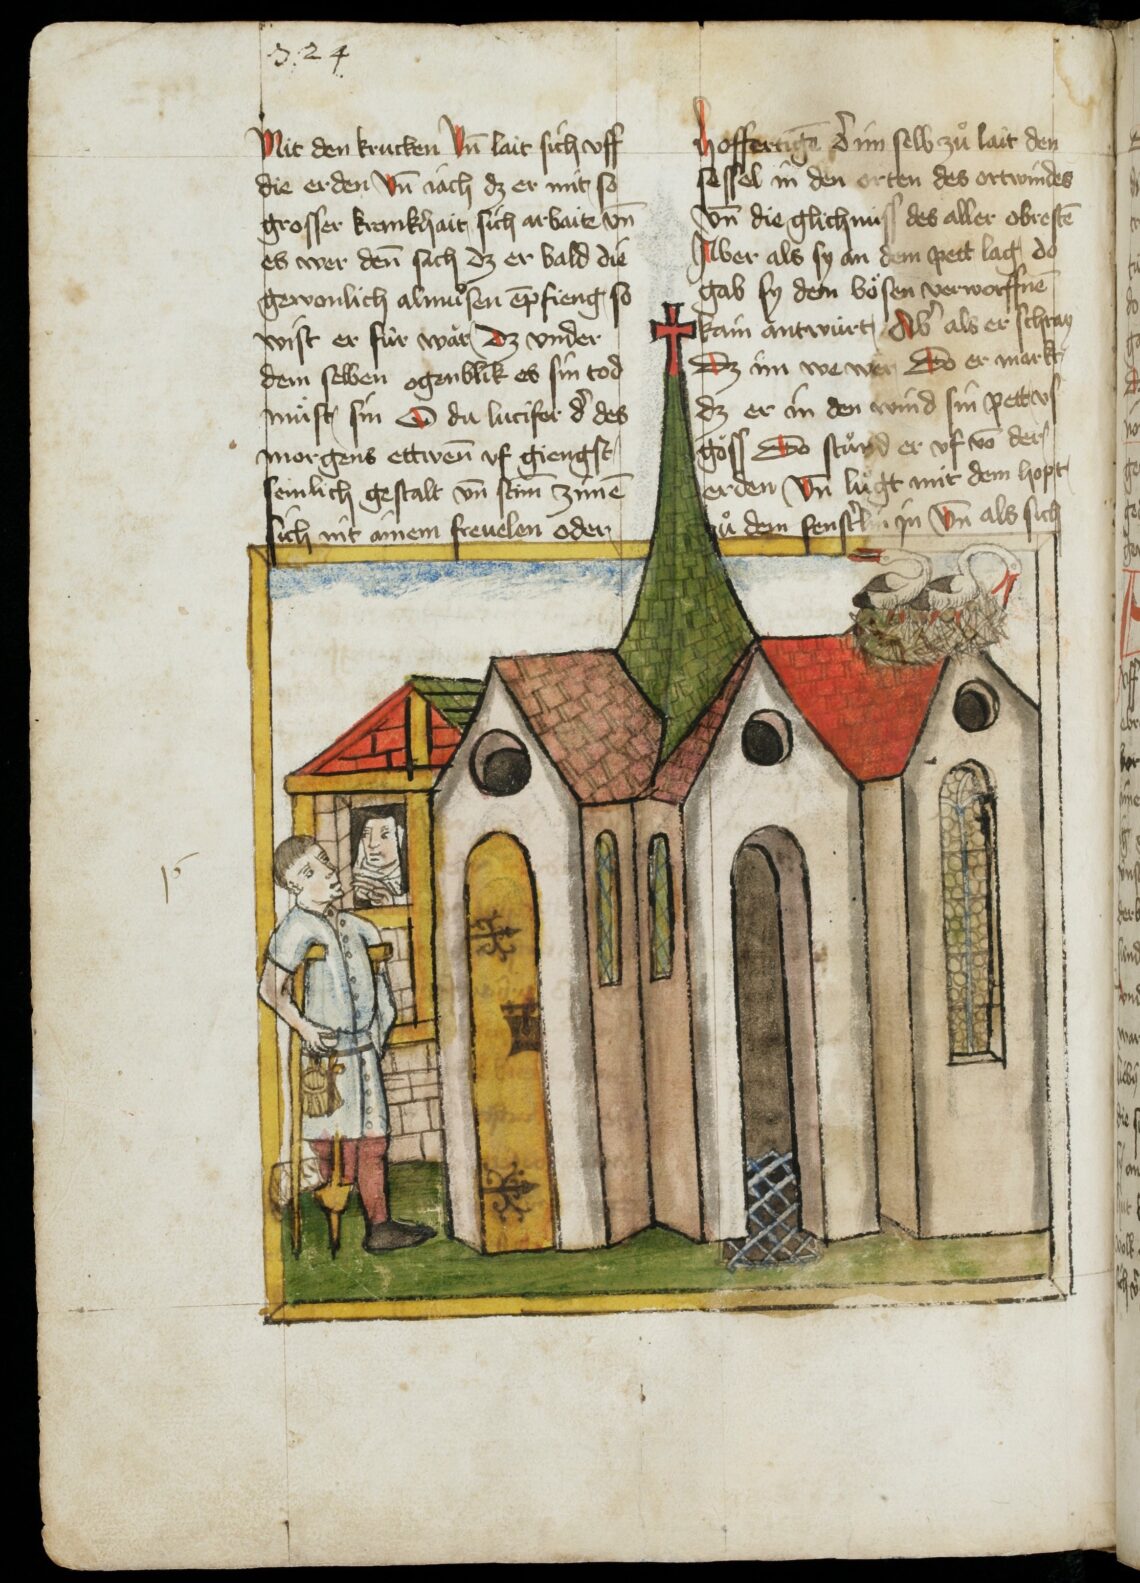 324
Mit den krucken Vn̄ lait sich vff
die erden Vn̄ iach dz er mit so
grosser krenkhait sich arbaite vn̄
es wer den̄ sach dz er bald die
gewonlich almůsen ēpfieng so
wist er für wăr Dz vnder
dem selben ogenblik es sin tod
müst sin O du lucifer d̄ des
morgens ettwen̄ vf giengst
semlich gestalt vn̄ stim̄ zimē
sich nit ainem freuelen oder
hoffertigē d̄ im selb zů lait den
sessel in den orten des ortwindes
Vn̄ die glichnuss des aller obrestē
Aber als sy an dem pett lag do
gab sy dem bösen verworffnē
kain antwürt Ab̄ als er schray
Dz im we wer Do er markt
dz er in den wind sin pett vs
göss Do stůnd er vf vō der
erden Vn̄ lůgt mit dem hopt
zů dem fenst̄lin in Vn̄ als sich
15